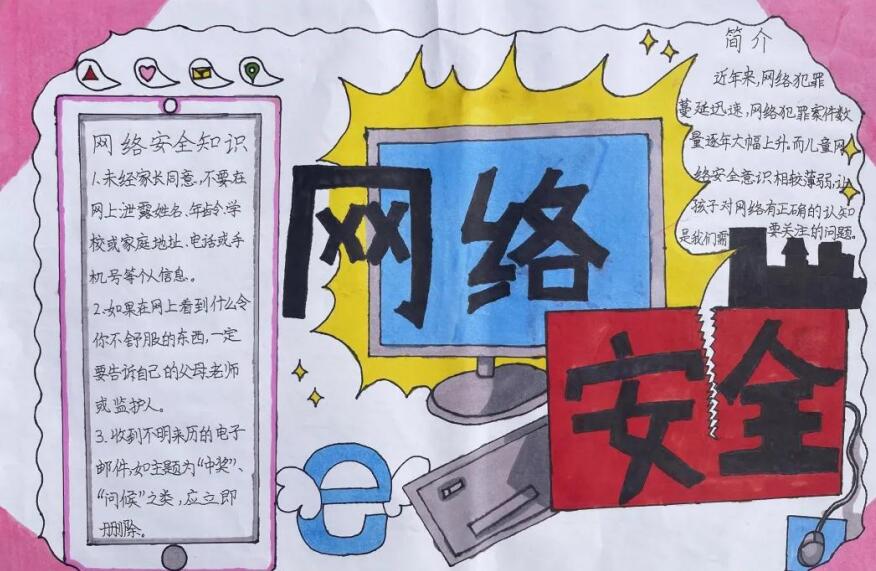 网络安全知识
1.未经家长同意,不要在
网上泄露姓名、年龄、学
校或家庭地址、电话或手
机号等个人信息。
2.如果在网上看到什么令
你不舒服的东西,一定
要告诉自己的父母、老师
或监护人。
3.收到不明来历的电子
邮件,如主题为“中奖”、
“问候”之类,应立即
删除。
网络
安全
e
简介
近年来,网络犯罪
蔓延迅速,网络犯罪案件数
量逐年大幅上升。而儿童网
络安全意识相较薄弱,让
孩子对网络有正确的认知
是我们需要关注的问题。